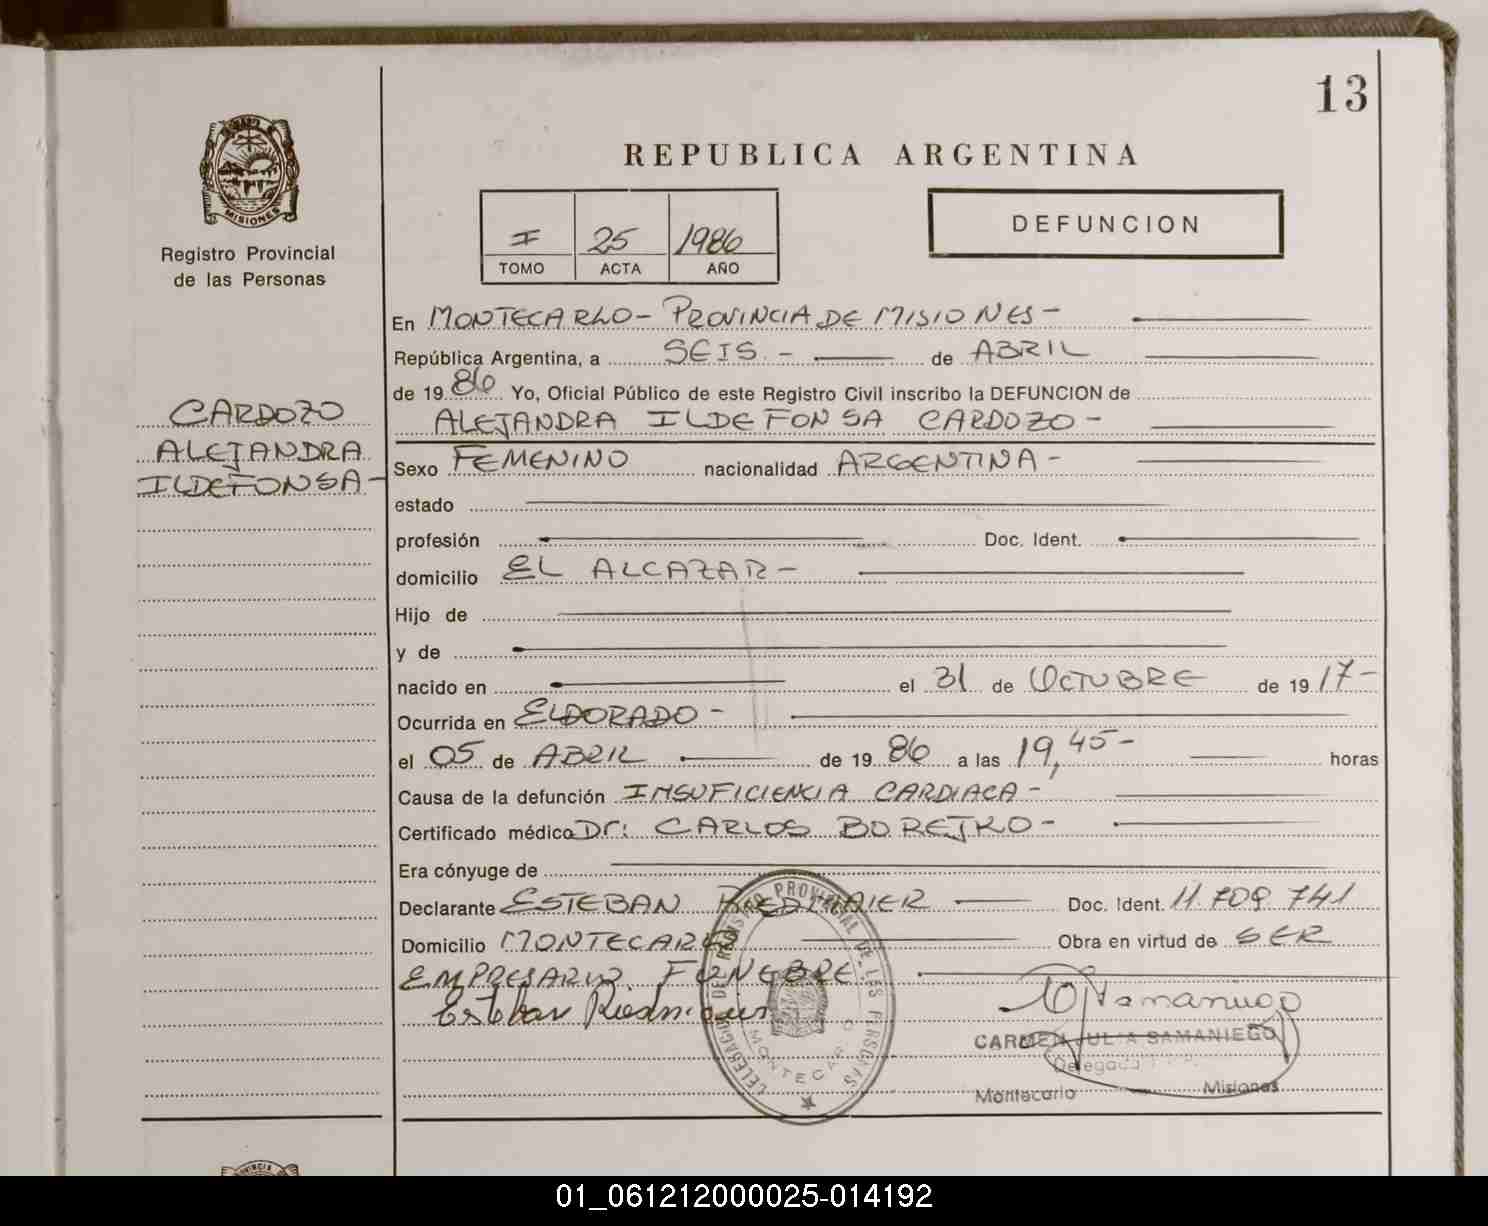 13
REPUBLICA ARGENTINA
MISIONES
Registro Provincial
de las Personas
I 25 1986
TOMO ACTA AÑO
DEFUNCION
CARDOZO
ALEJANDRA
ILDEFONSA-
En MONTECARLO- PROVINCIA DE MISIONES-
República Argentina, a SEIS - de ABRIL
de 1986 Yo, Oficial Público de este Registro Civil inscribo la DEFUNCION de
ALEJANDRA ILDEFONSA CARDOZO-
Sexo FEMENINO nacionalidad ARGENTINA-
estado
profesión Doc. Ident.
domicilio EL ALCAZAR-
Hijo de
y de
nacido en el 31 de OCTUBRE de 1917-
Ocurrida en ELDORADO-
el 05 de ABRIL de 1986 a las 19,45- horas
Causa de la defunción INSUFICIENCIA CARDIACA-
Certificado médico Dr: CARLOS BOREJKO-
Era cónyuge de
Declarante ESTEBAN RIEDMAIER Doc. Ident. 11.709 741
Domicilio MONTECARLO Obra en virtud de SER
EMPRESARIO FUNEBRE
Esteban
CARMEN JULIA SAMANIEGO
Delegada
Montecarlo Misiones
REGISTRO PROVINCIAL DE LAS PERSONAS
MONTECARLO
01_061212000025-014192